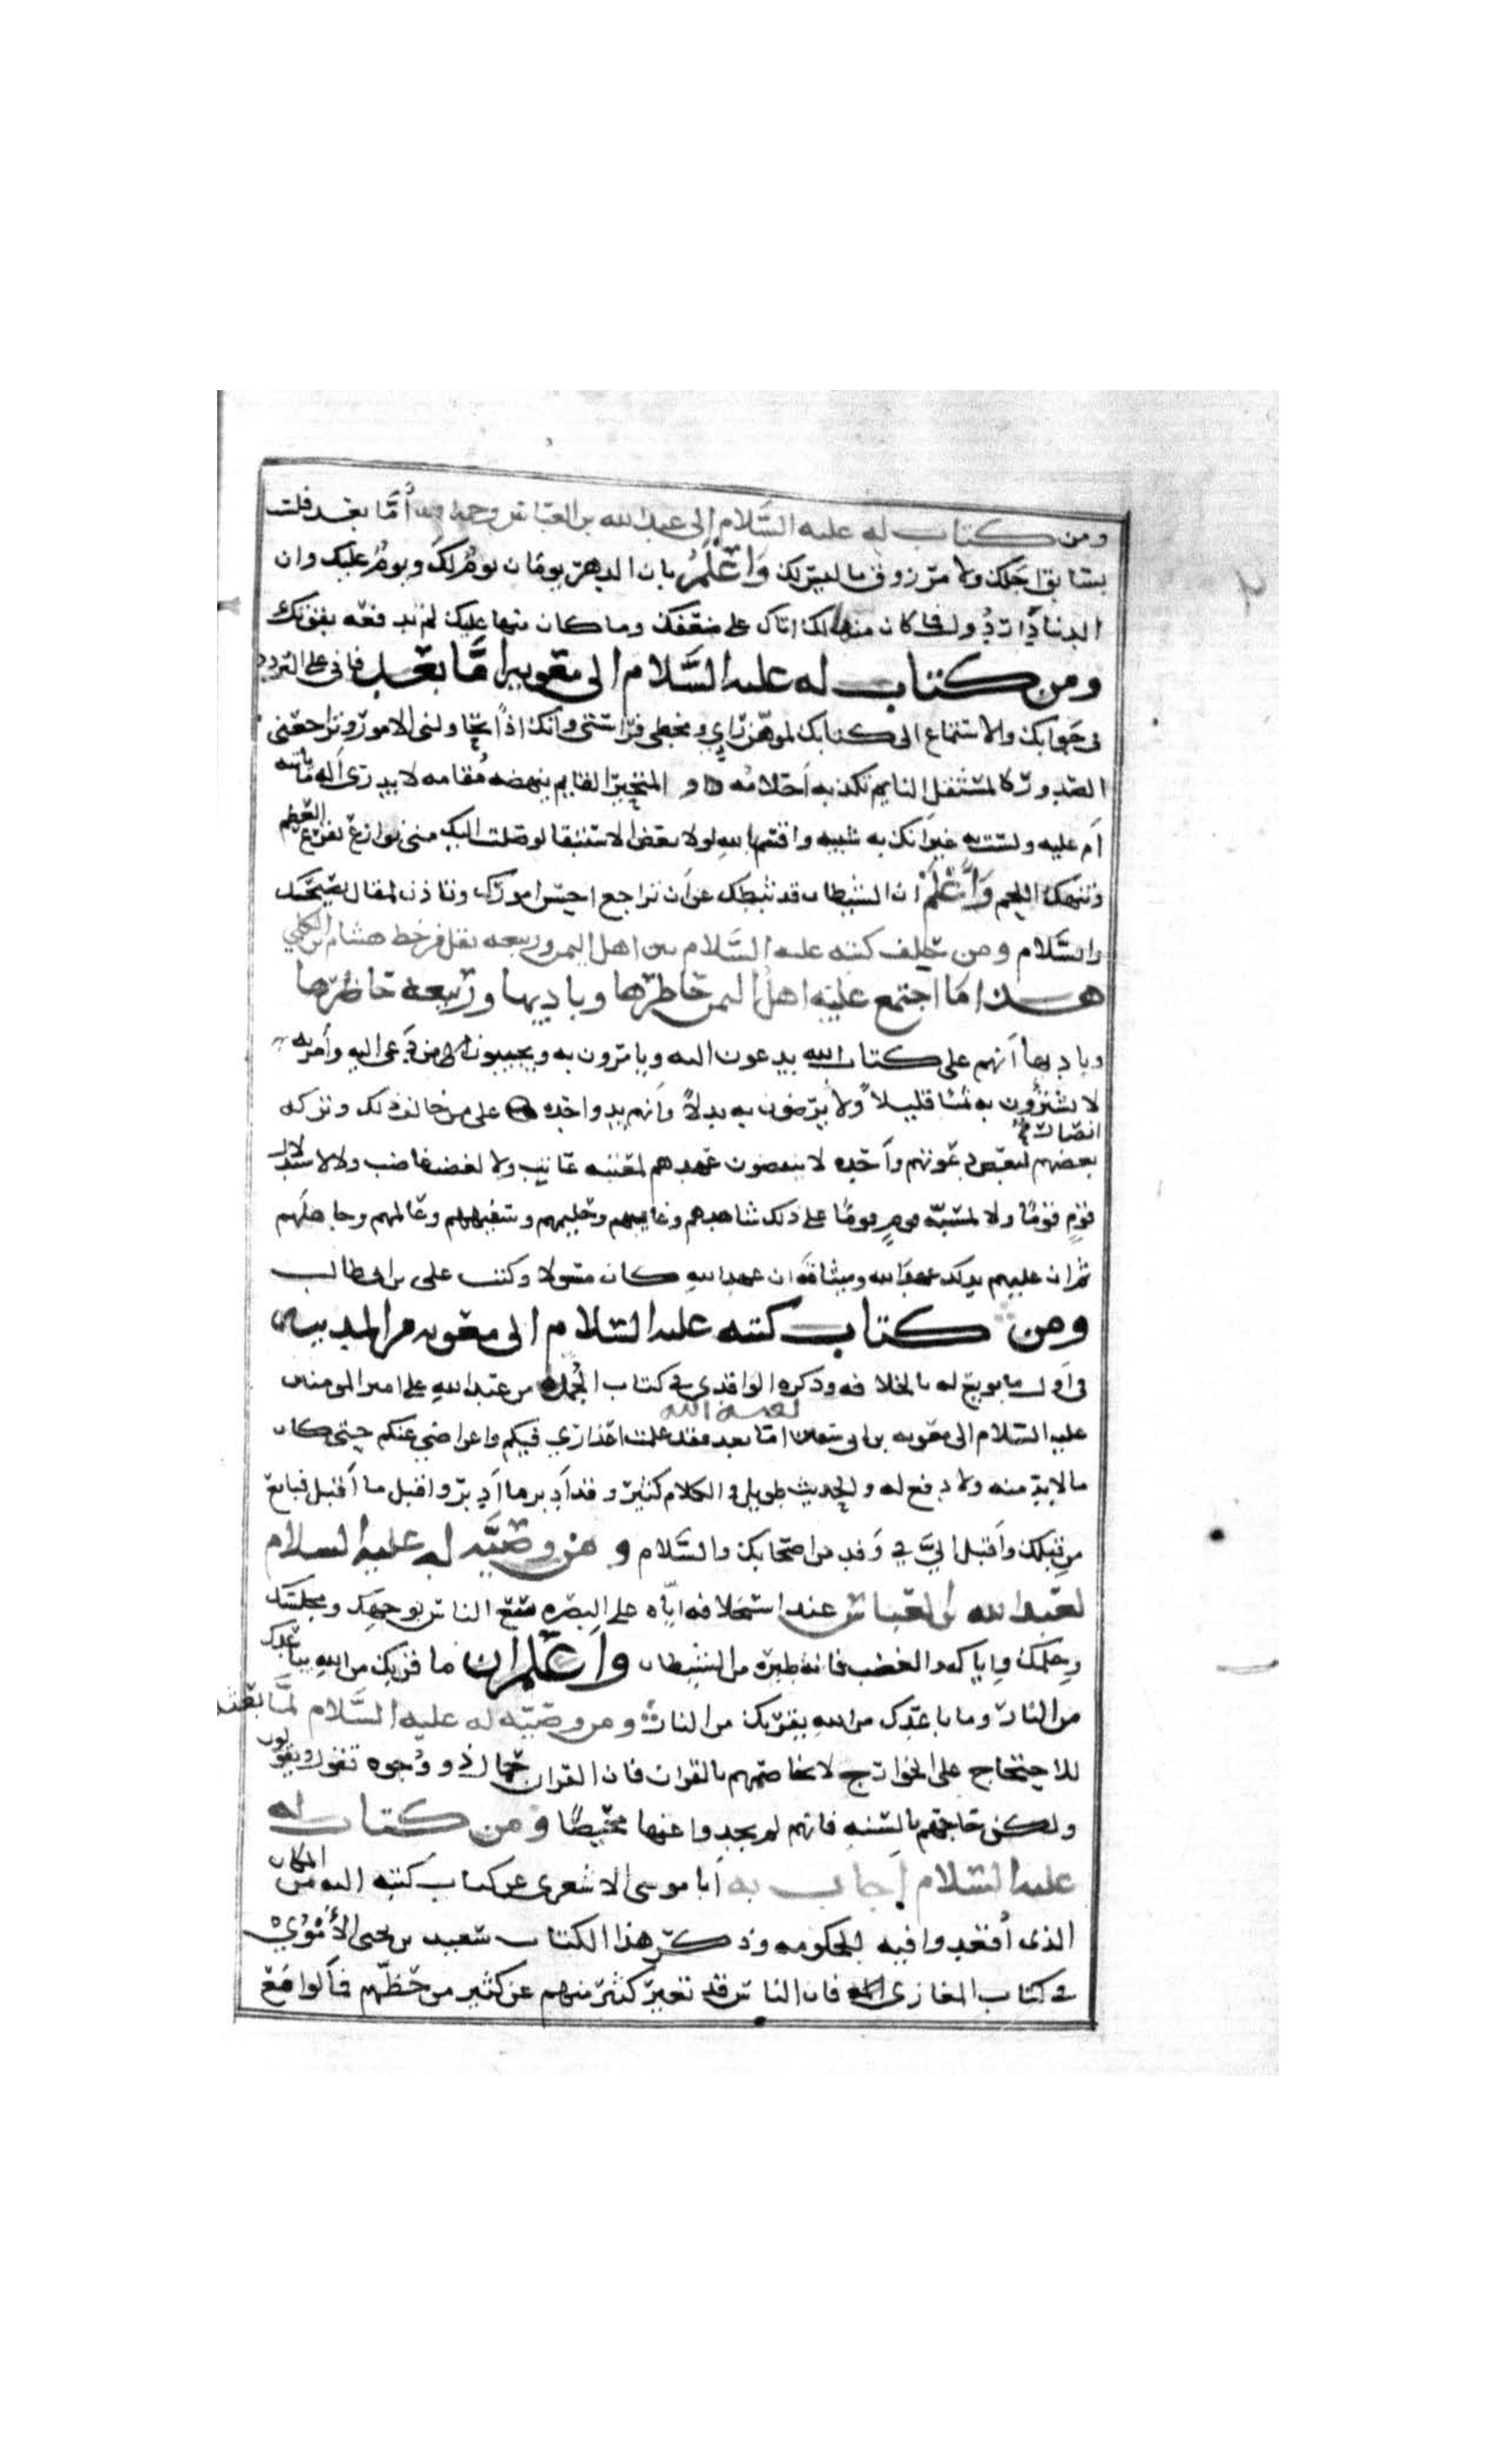 ومن كتاب له عليه السلام إلى عبد الله بن العباس رحمه الله أما بعد فلست
بسابق أجلك ولا مرزوق ما ليس لك واعلم بان الدهر يومان يوم لك ويوم عليك وان
الدنيا دار دول فما كان منها لك اتاك على ضعفك وما كان منها عليك لم تدفعه بقوتك
ومن كتاب له عليه السلام الى معويه اما بعد فاني على التردد
في جوابك والاستماع الى كتابك لموهن رأي ومخطي فراستي وانك اذ تحاولني الامور وتراجعني
السطور كالمستثقل النايم تكذبه أحلامه او المتحير القايم يبهضه مقامه لا يدرى أله ما ياتيه
أم عليه ولست به غير انك به شبيه واقسم بالله لولا بعض الاستبقا لوصلت اليك مني نوازع تقرع العظم
وتنهك اللحم واعلم ان الشيطان قد ثبطك عن أن تراجع احسن امورك وتاذن لمقال نصيحتك
والسلام ومن حلف كتبه عليه السلام بين اهل اليمن وربيعه نقل من خط هشام ابن الكلبي
هذا ما اجتمع عليه اهل اليمن حاضرها وباديها وربيعه حاضرها
وباديها أنهم على كتاب الله يدعون اليه ويامرون به ويجيبون من دعى اليه وأمر به
لا يشترون به ثمنا قليلا ولا يرضون به بدلا وأنهم يد واحده على من خالف ذلك وتركه
انصار
بعضهم لبعض دعوتهم واحده لا ينقضون عهدهم لمعتبه عاتب ولا لغضب غاضب ولا لاستذلال
قوم قوما ولا لمسبة قوم قوما على ذلك شاهدهم وغايبهم وحليمهم وسفيههم وعالمهم وجاهلهم
ثم ان عليهم بذلك عهد الله وميثاقه ان عهد الله كان مسولا وكتب علي بن ابي طالب
ومن كتاب كتبه عليه السلام الى معويه من المدينه
في أول ما بويع له بالخلافه وذكره الواقدي في كتاب الجمل من عبد الله علي امير المومنين
لعنه الله
عليه السلام الى معويه بن ابي سفين اما بعد فقد علمت اعذاري فيكم واعراضي عنكم حتى كان
ما لا بد منه ولا دفع له والحديث طويل والكلام كثير وقد أدبر ما أدبر واقبل ما أقبل فبايع
من قبلك وأقبل الي في وفد من اصحابك والسلام ومن وصيه له عليه السلام
لعبد الله بن العباس عند استخلافه اياه على البصره سع الناس بوجهك ومجلسك
وحلمك واياك والغضب فانه طيره من الشيطان واعلم ان ما قربك من الله يباعدك
من النار وما باعدك من الله يقربك من النار ومن وصيه له عليه السلام لما بعثه
للاحتجاج على الخوارج لا تخاصمهم بالقران فان القران حمال ذو وجوه تقول ويقولون
ولكن حاجهم بالسنه فانهم لم يجدوا عنها محيصا ومن كتاب له
عليه السلام أجاب به أبا موسى الاشعرى عن كتاب كتبه اليه من المكان
الذى أقعدوا فيه للحكومه وذكر هذا الكتاب سعيد بن يحيى الأموي
في كتاب المغازى فان الناس قد تغير كثير منهم عن كثير من حظهم فمالوا مع